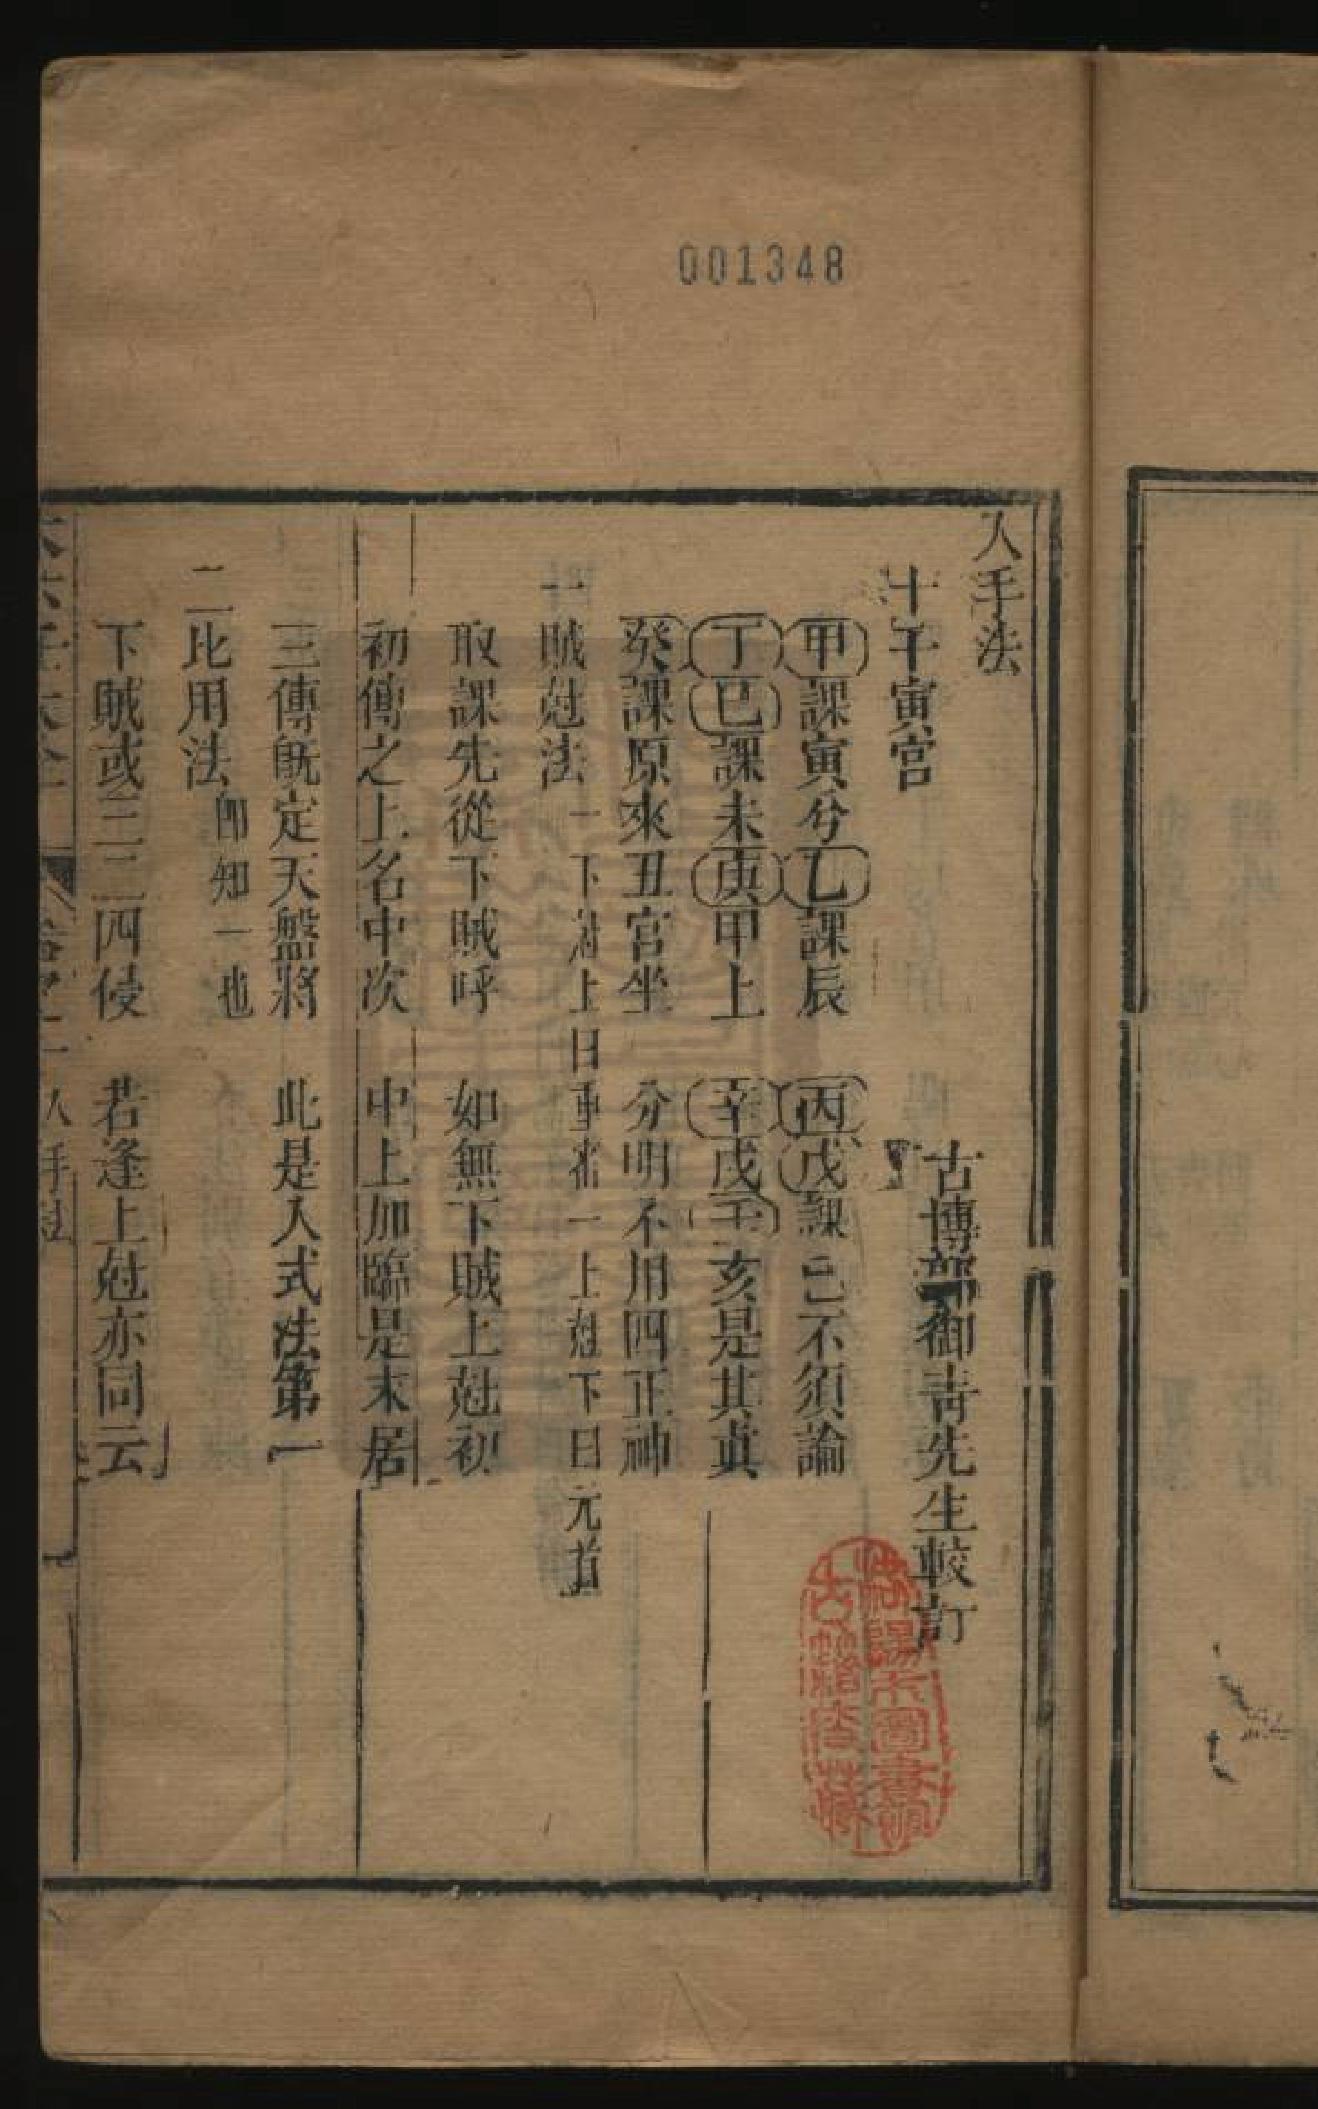 001348
入手法
十干寅宮
古 御青先生較訂
甲課寅兮乙課辰 丙戊課巳不須論
丁己課未庚申上 辛戌壬亥是其眞
癸課原來丑宮坐 分明不用四正神
一賊尅法 一下尅上曰重審 一上尅下曰元首
取課先從下賊呼 如無下賊上尅初
初傳之上名中次 中上加臨是末居
三傳既定天盤將 此是入式法第一
二比用法 即知一也
下賊或三二四侵 若逢上尅亦同云